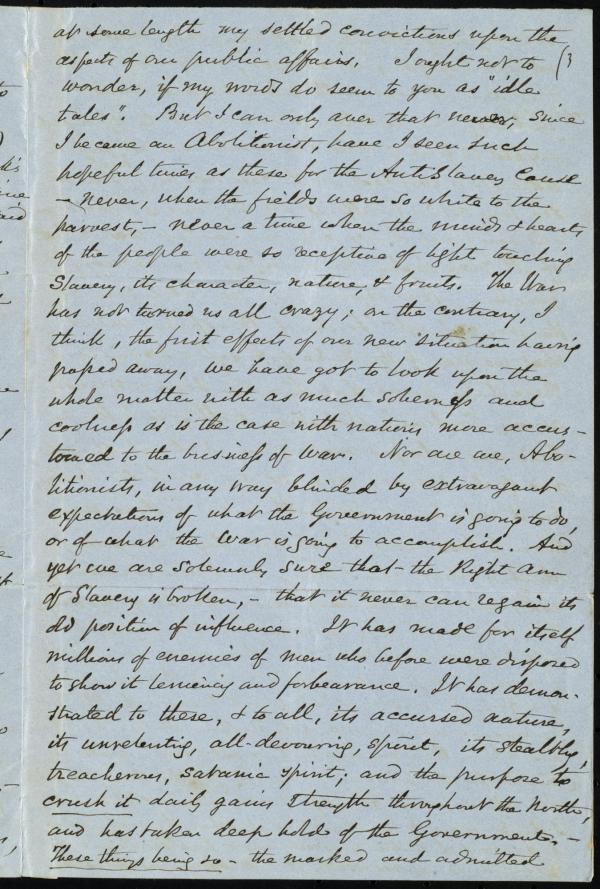 at some length my settled convictions upon the
aspects of our public affairs. I ought not to (3
wonder, if my words do seem to you as "idle
tales". But I can only aver that never, since
I became an Abolitionist, have I seen such
hopeful times as these for the AntiSlavery Cause
– never, when the fields were so white to the
harvest, – never a time when the minds & hearts
of the people were so receptive of light touching
Slavery, its character, nature, & fruits. The War
has not turned us all crazy; on the contrary, I
think, the first effects of our new situation having
passed away, we have got to look upon the
whole matter with as much soberness and
coolness as is the case with nations more accus-
tomed to the business of war. Nor are we, Abo-
litionists, in any way blinded by extravagant
expectations of what the Government is going to do,
or of what the War is going to accomplish. And
yet we are solemnly sure that the Right arm
of Slavery is broken, – that it never can regain its
old position of influence. It has made for itself
millions of enemies of men who before were disposed
to show it leniency and forbearance. It has demon-
strated to these, & to all, its accursed nature,
its unrelenting, all-devouring, spirit, its stealthy,
treacherous, satanic spirit; and the purpose to
crush it daily gains strength throughout the North,
and has taken deep hold of the Government. –
These things being so – the marked and admitted